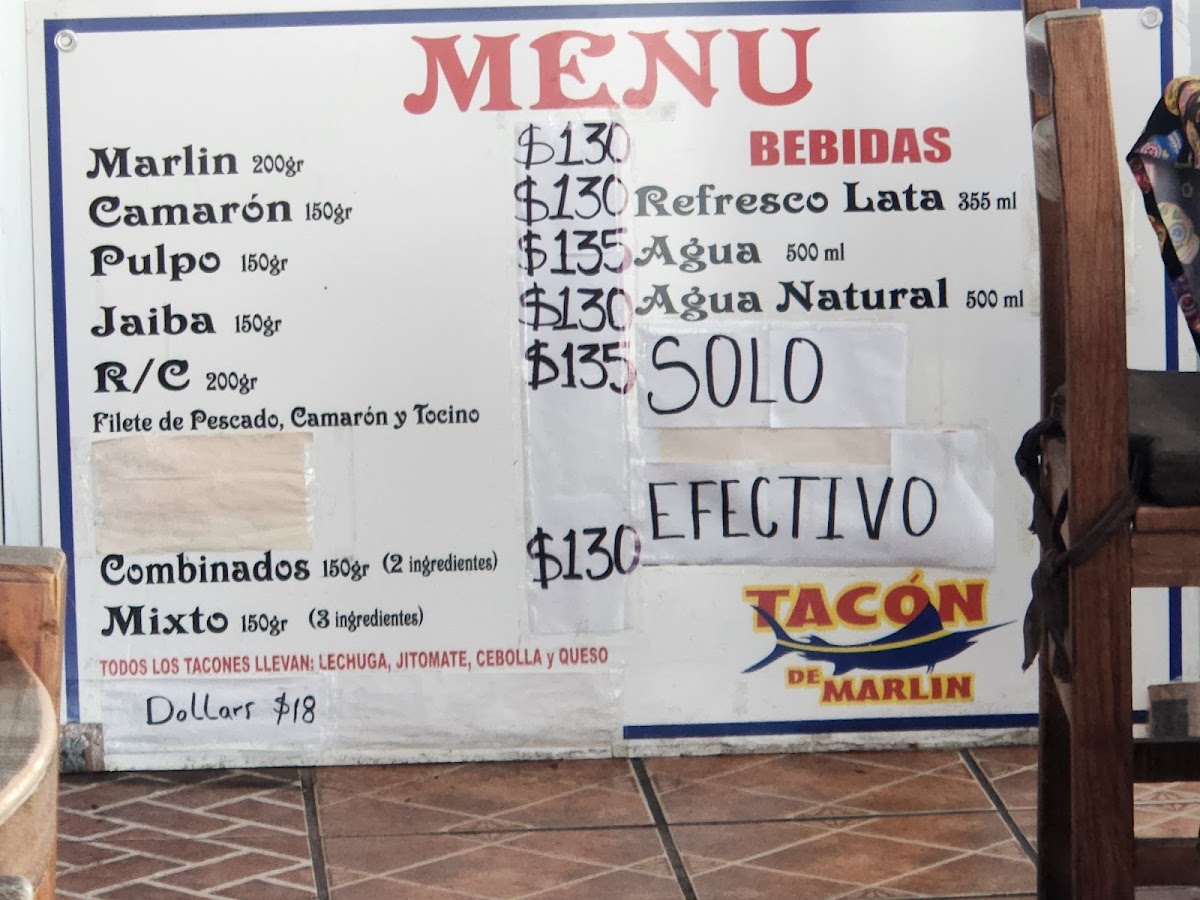 MENU
Marlin 200gr $130
Camarón 150gr $130
Pulpo 150gr $135
Jaiba 150gr $130
R/C 200gr $135
Filete de Pescado, Camarón y Tocino
Combinados 150gr (2 ingredientes) $130
Mixto 150gr (3 ingredientes)
TODOS LOS TACONES LLEVAN: LECHUGA, JITOMATE, CEBOLLA y QUESO
Dollars $18
BEBIDAS
Refresco Lata 355 ml
Agua 500 ml
Agua Natural 500 ml
SOLO
EFECTIVO
TACÓN
DE MARLIN